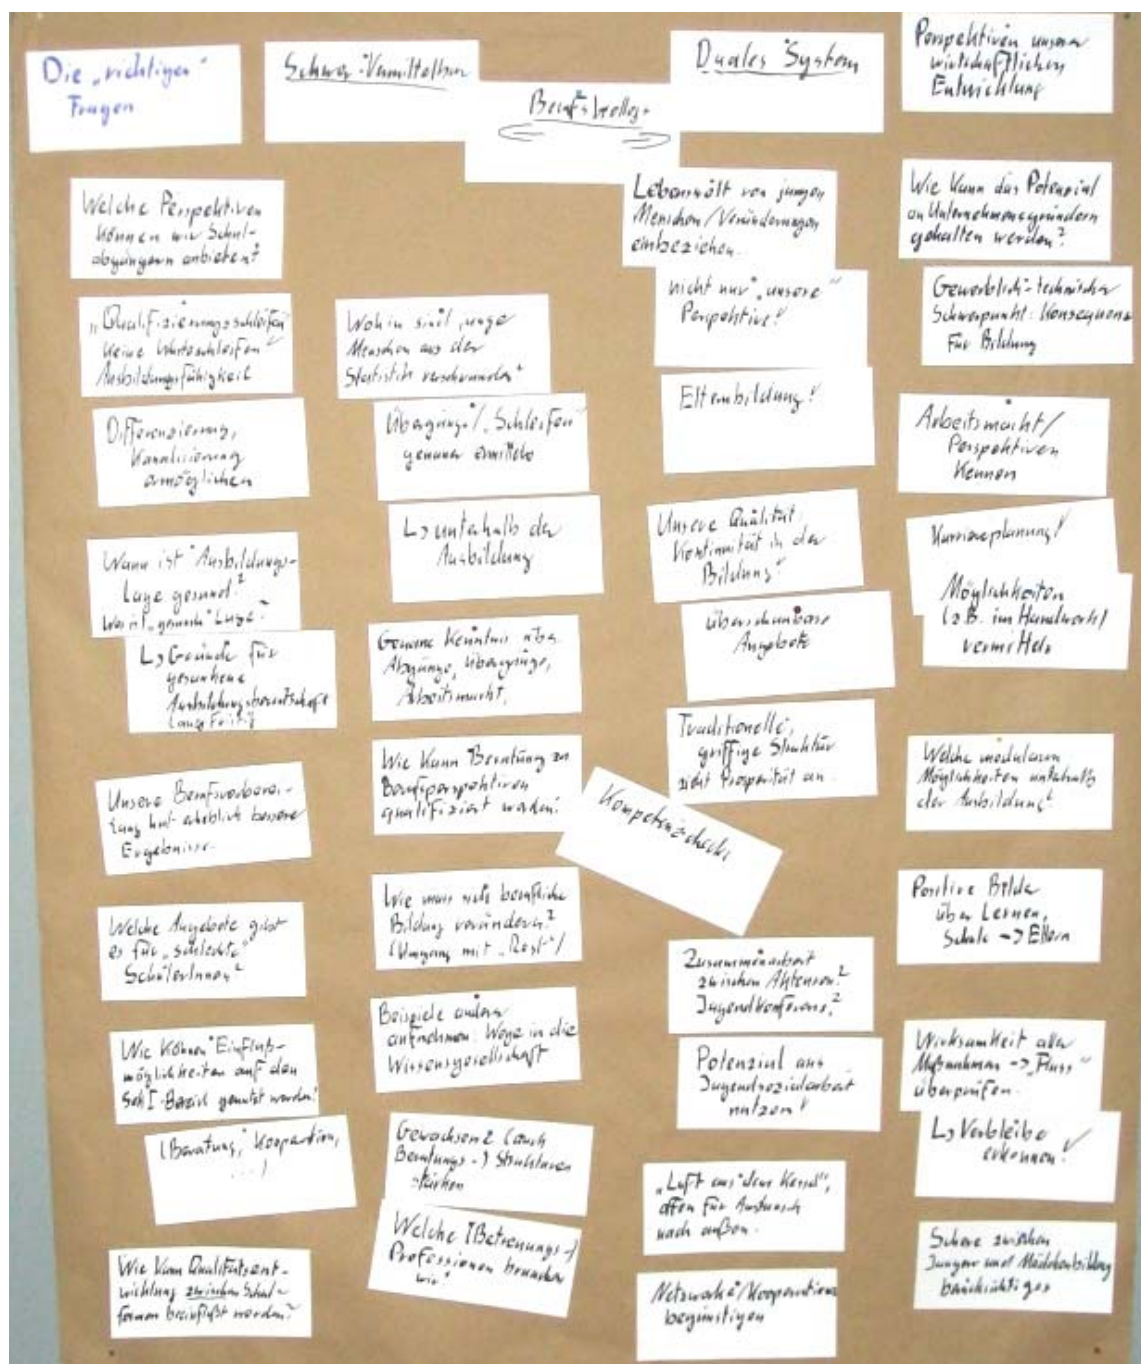 Die „richtigen"
Fragen
Schwer-Vermittelbar
Berufskolleg
Duales System
Perspektiven unserer
wirtschaftlichen
Entwicklung
Welche Perspektiven
können wir Schul-
abgängern anbieten?
„Qualifizierungsschleifen"
keine Warteschleifen
Ausbildungsfähigkeit
Differenzierung,
Kanalisierung
ermöglichen
Wann ist Ausbildungs-
Lage gesund?
Was ist „gesunde" Lage?
L> Gründe für
gesunkene
Ausbildungsbereitschaft
langfristig
Unsere Berufsvorberei-
tung hat erheblich bessere
Ergebnisse.
Welche Angebote gibt
es für „schlechte"
SchülerInnen?
Wie können Einfluß-
möglichkeiten auf den
Sek I-Bereich genutzt werden?
(Beratung, Kooperation,
...)
Wie kann Qualitätsent-
wicklung zwischen Schul-
formen beeinflußt werden?
Wohin sind junge
Menschen aus der
Statistik verschwunden?
Übergangs/„Schleifen"
genauer ermitteln
L> unterhalb der
Ausbildung
Genaue Kenntnis über
Abgänge, Übergänge,
Arbeitsmarkt.
Wie kann Beratung zu
Berufsperspektiven
qualifiziert werden?
Wie muss sich berufliche
Bildung verändern?
(Umgang mit „Rest")
Beispiele anderer
aufnehmen: Wege in die
Wissensgesellschaft
Gewachsene (auch
Beratungs-) Strukturen
stärken
Welche (Betreuungs-)
Professionen brauchen
wir?
Lebenswelt von jungen
Menschen/Veränderungen
einbeziehen.
nicht nur „unsere"
Perspektive!
Elternbildung!
Unsere Qualität:
Kontinuität in der
Bildung!
überschaubare
Angebote
Traditionelle,
griffige Struktur
zieht Prosperität an.
Kompetenzchecks
Zusammenarbeit
zwischen Akteuren?
Jugendkonferenz?
Potenzial aus
Jugendsozialarbeit
nutzen!
„Luft aus dem Kessel",
offen für Austausch
nach außen.
Netzwerke/Kooperationen
begünstigen
Wie kann das Potenzial
an Unternehmensgründern
gehalten werden?
Gewerblich-technischer
Schwerpunkt: Konsequenz
für Bildung
Arbeitsmarkt/
Perspektiven
kennen
Karriereplanung!
Möglichkeiten
(z.B. im Handwerk)
vermitteln
Welche modularen
Möglichkeiten unterhalb
der Ausbildung?
Positive Bilder
über Lernen,
Schule -> Eltern
Wirksamkeit aller
Maßnahmen -> „Fluss"
überprüfen.
L> Verbleibe
erkennen!
Schere zwischen
Jungen und Mädchenbildung
berücksichtigen